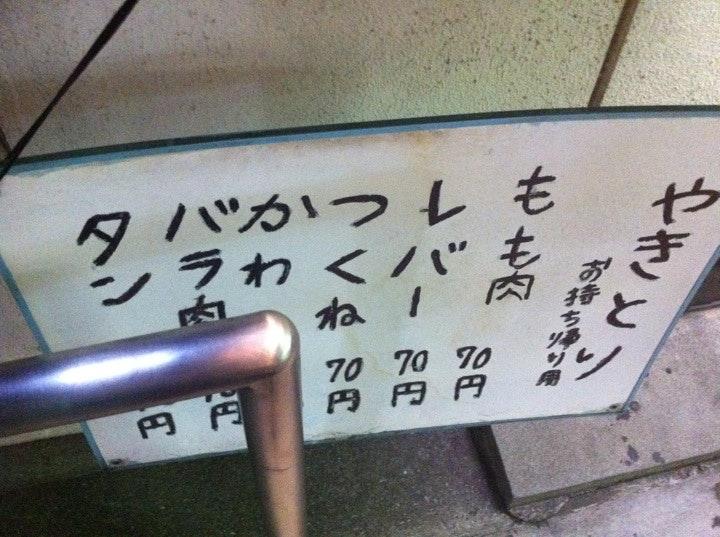 やきとり
お持ち帰り用
もも肉 70円
レバー 70円
つくね 70円
かわ
バラ肉 円
タン 円